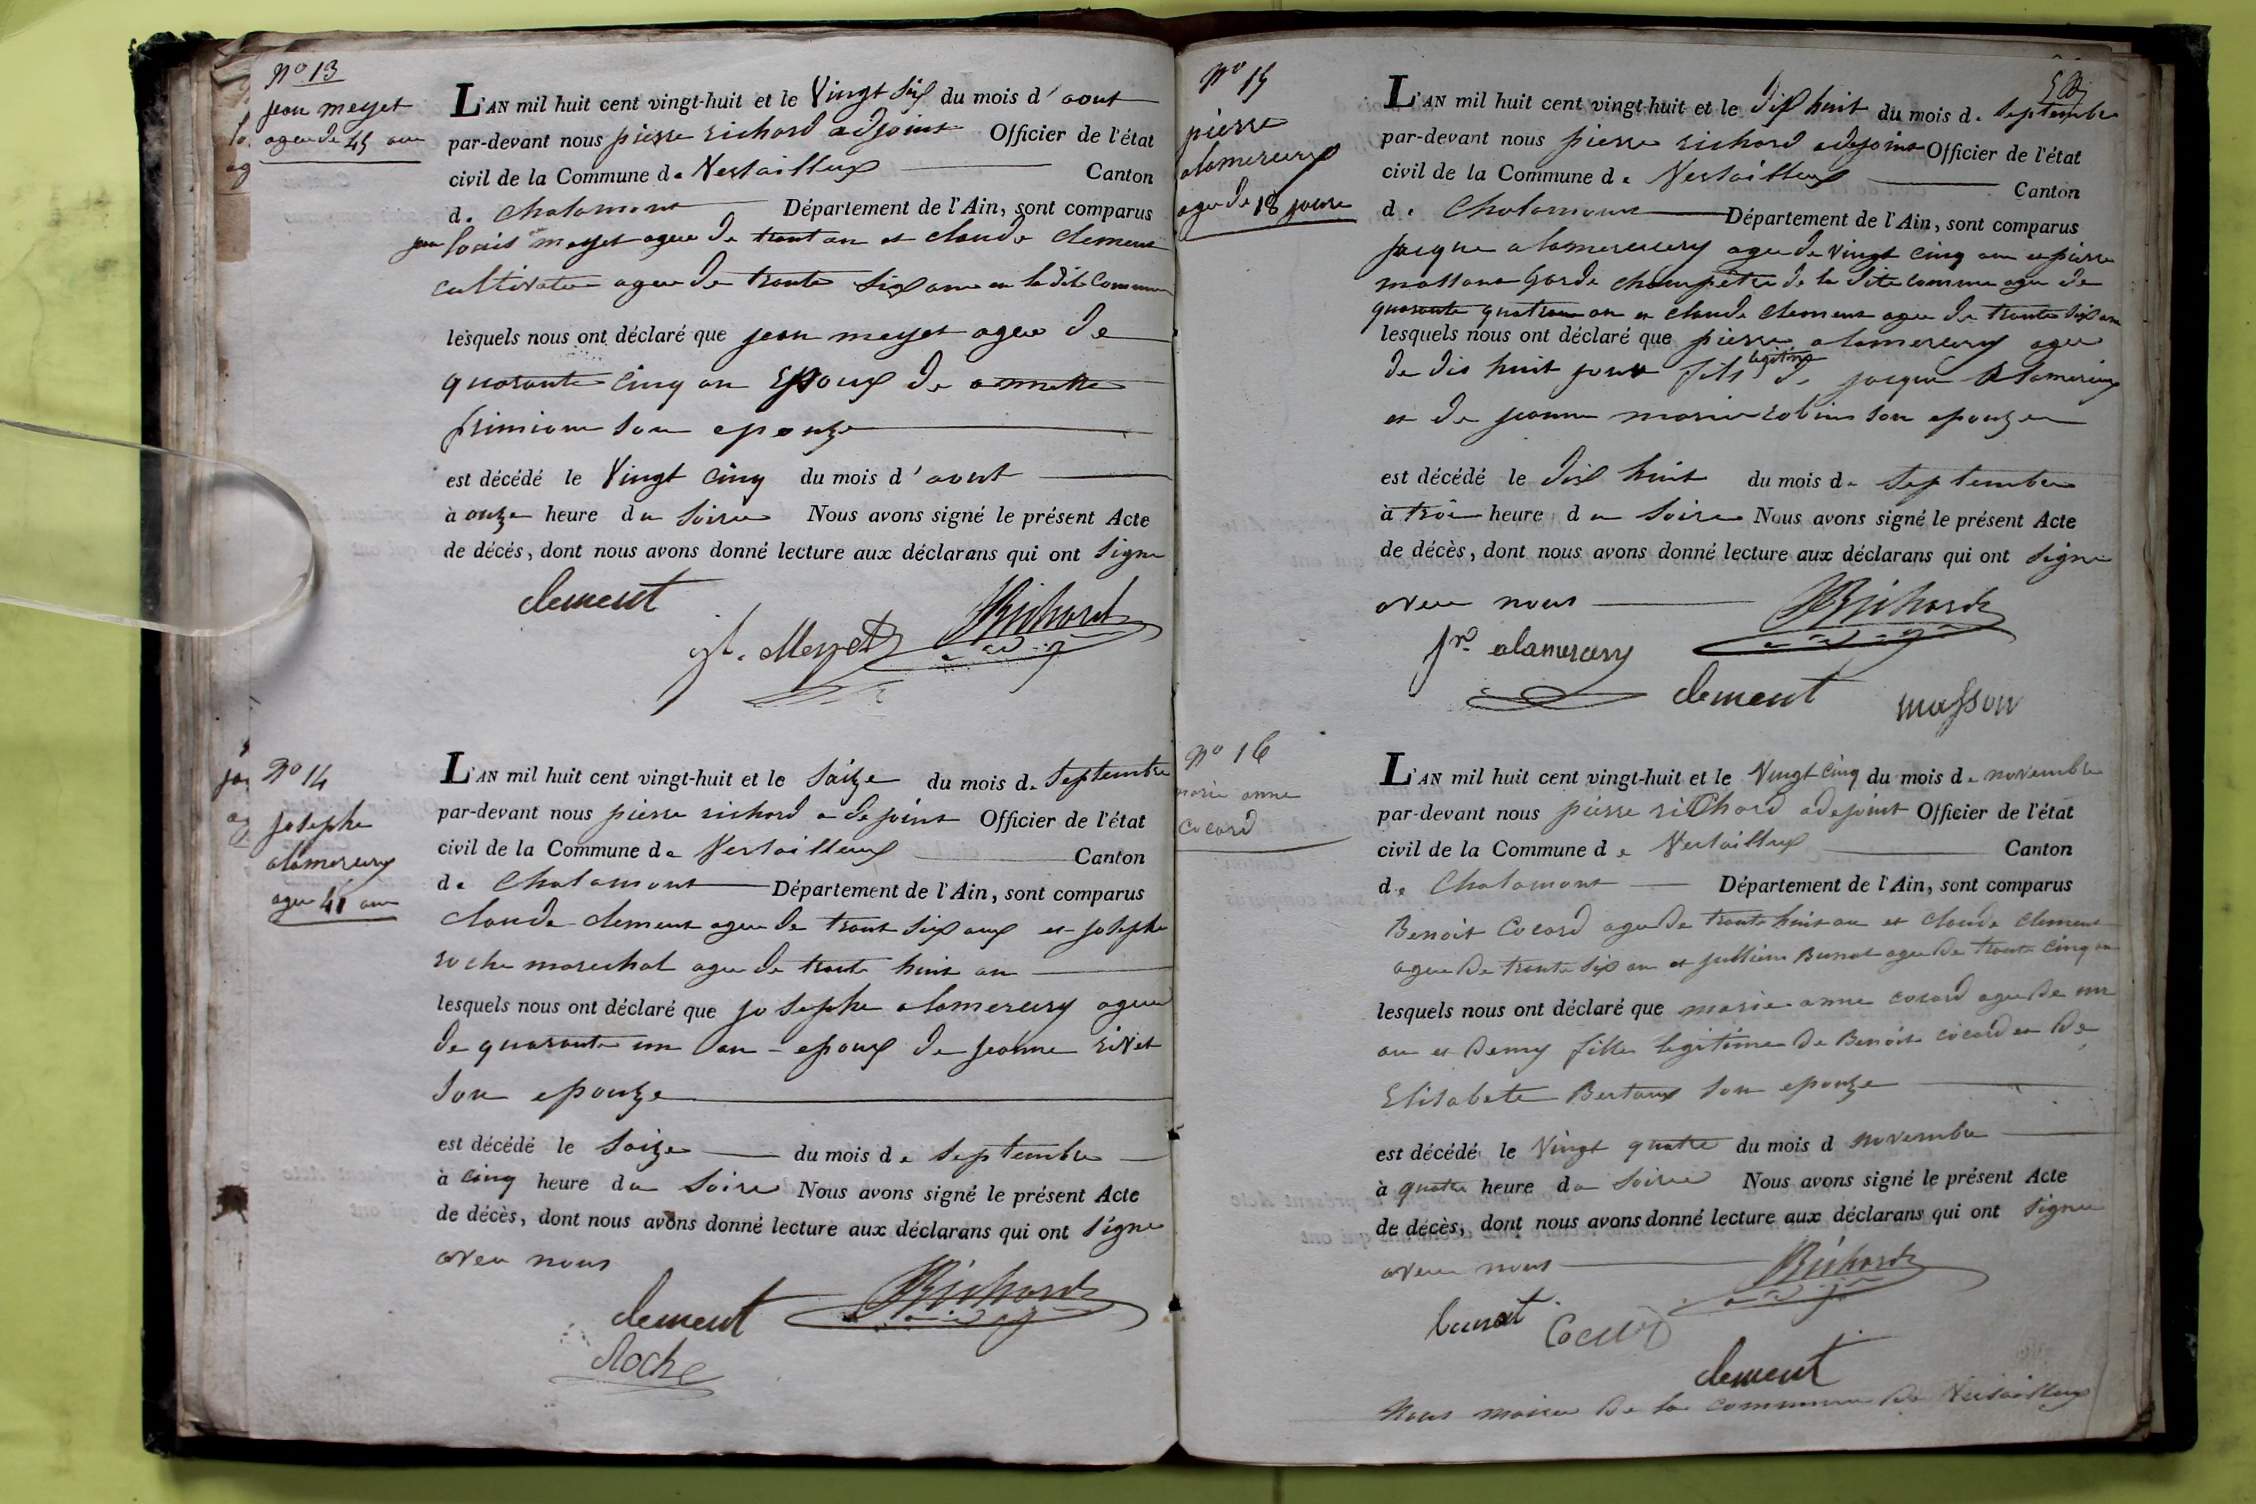 No 13
jean meyet
agee de 45 an
L'AN mil huit cent vingt-huit et le Vingt Six du mois d'aout
par-devant nous pierre richard adjoint Officier de l'état
civil de la Commune de Versailleux Canton
de Chalamont Département de l'Ain, sont comparus
jean louis meyet agee de trant an et claude clement
cultivateur agee de trante six an en la dite Commune
lesquels nous ont déclaré que jean meyet agee de
quarante cinq an Epoux de annette
son epouze
est décédé le Vingt cinq du mois d'aout
à onze heure du soire Nous avons signé le présent Acte
de décès, dont nous avons donné lecture aux déclarans qui ont signe
clement
jl. Meyet Richard
adj
No 14
josephe
alamercery
agee 41 an
L'AN mil huit cent vingt-huit et le saize du mois de septembre
par-devant nous pierre richard adejoint Officier de l'état
civil de la Commune de Versailleux Canton
de Chalamont Département de l'Ain, sont comparus
claude clement agee de trant six anx et josephe
roche marechal agee de trante huit an
lesquels nous ont déclaré que josephe alamercery agee
de quarante un an epoux de jeanne rivet
son epouze
est décédé le saize du mois de septembre
à cinq heure du soire Nous avons signé le présent Acte
de décès, dont nous avons donné lecture aux déclarans qui ont signe
avec nous
clement Richard
adj
Roche
No 15
pierre
alamercery
agee de 18 jours
L'AN mil huit cent vingt-huit et le dix huit du mois de septembre
par-devant nous pierre richard adejoint Officier de l'état
civil de la Commune de Versailleux Canton
de Chalamont Département de l'Ain, sont comparus
jacque alamercery agee de vingt cinq an et pierre
massone garde champêtre de la dite commune agee de
quarante quatre an et claude clement agee de trante six an
lesquels nous ont déclaré que pierre alamercery agee
de dix huit jour fils legitime de jacque alamercery
et de jeanne marie robin son epouze
est décédé le dix huit du mois de septembre
à troi heure du soire Nous avons signé le présent Acte
de décès, dont nous avons donné lecture aux déclarans qui ont signe
avec nous Richard
adj
alamercery
clement masson
No 16
marie anne
cocard
L'AN mil huit cent vingt-huit et le Vingt cinq du mois de novembre
par-devant nous pierre richard adejoint Officier de l'état
civil de la Commune de Versailleux Canton
de Chalamont Département de l'Ain, sont comparus
Benoit Cocard agee de trante huit an et claude clement
agee de trante six an et jullien Bunat agee de trante cinq an
lesquels nous ont déclaré que marie anne cocard agee de un
an et demy fille legitime de Benoit cocard et de
Elisabete son epouze
est décédé le Vingt quatre du mois d novembre
à quatre heure du soire Nous avons signé le présent Acte
de décès, dont nous avons donné lecture aux déclarans qui ont signe
avec nous Richard
adj
bunat Cocard
clement
Nous maire de la commune de Versailleux